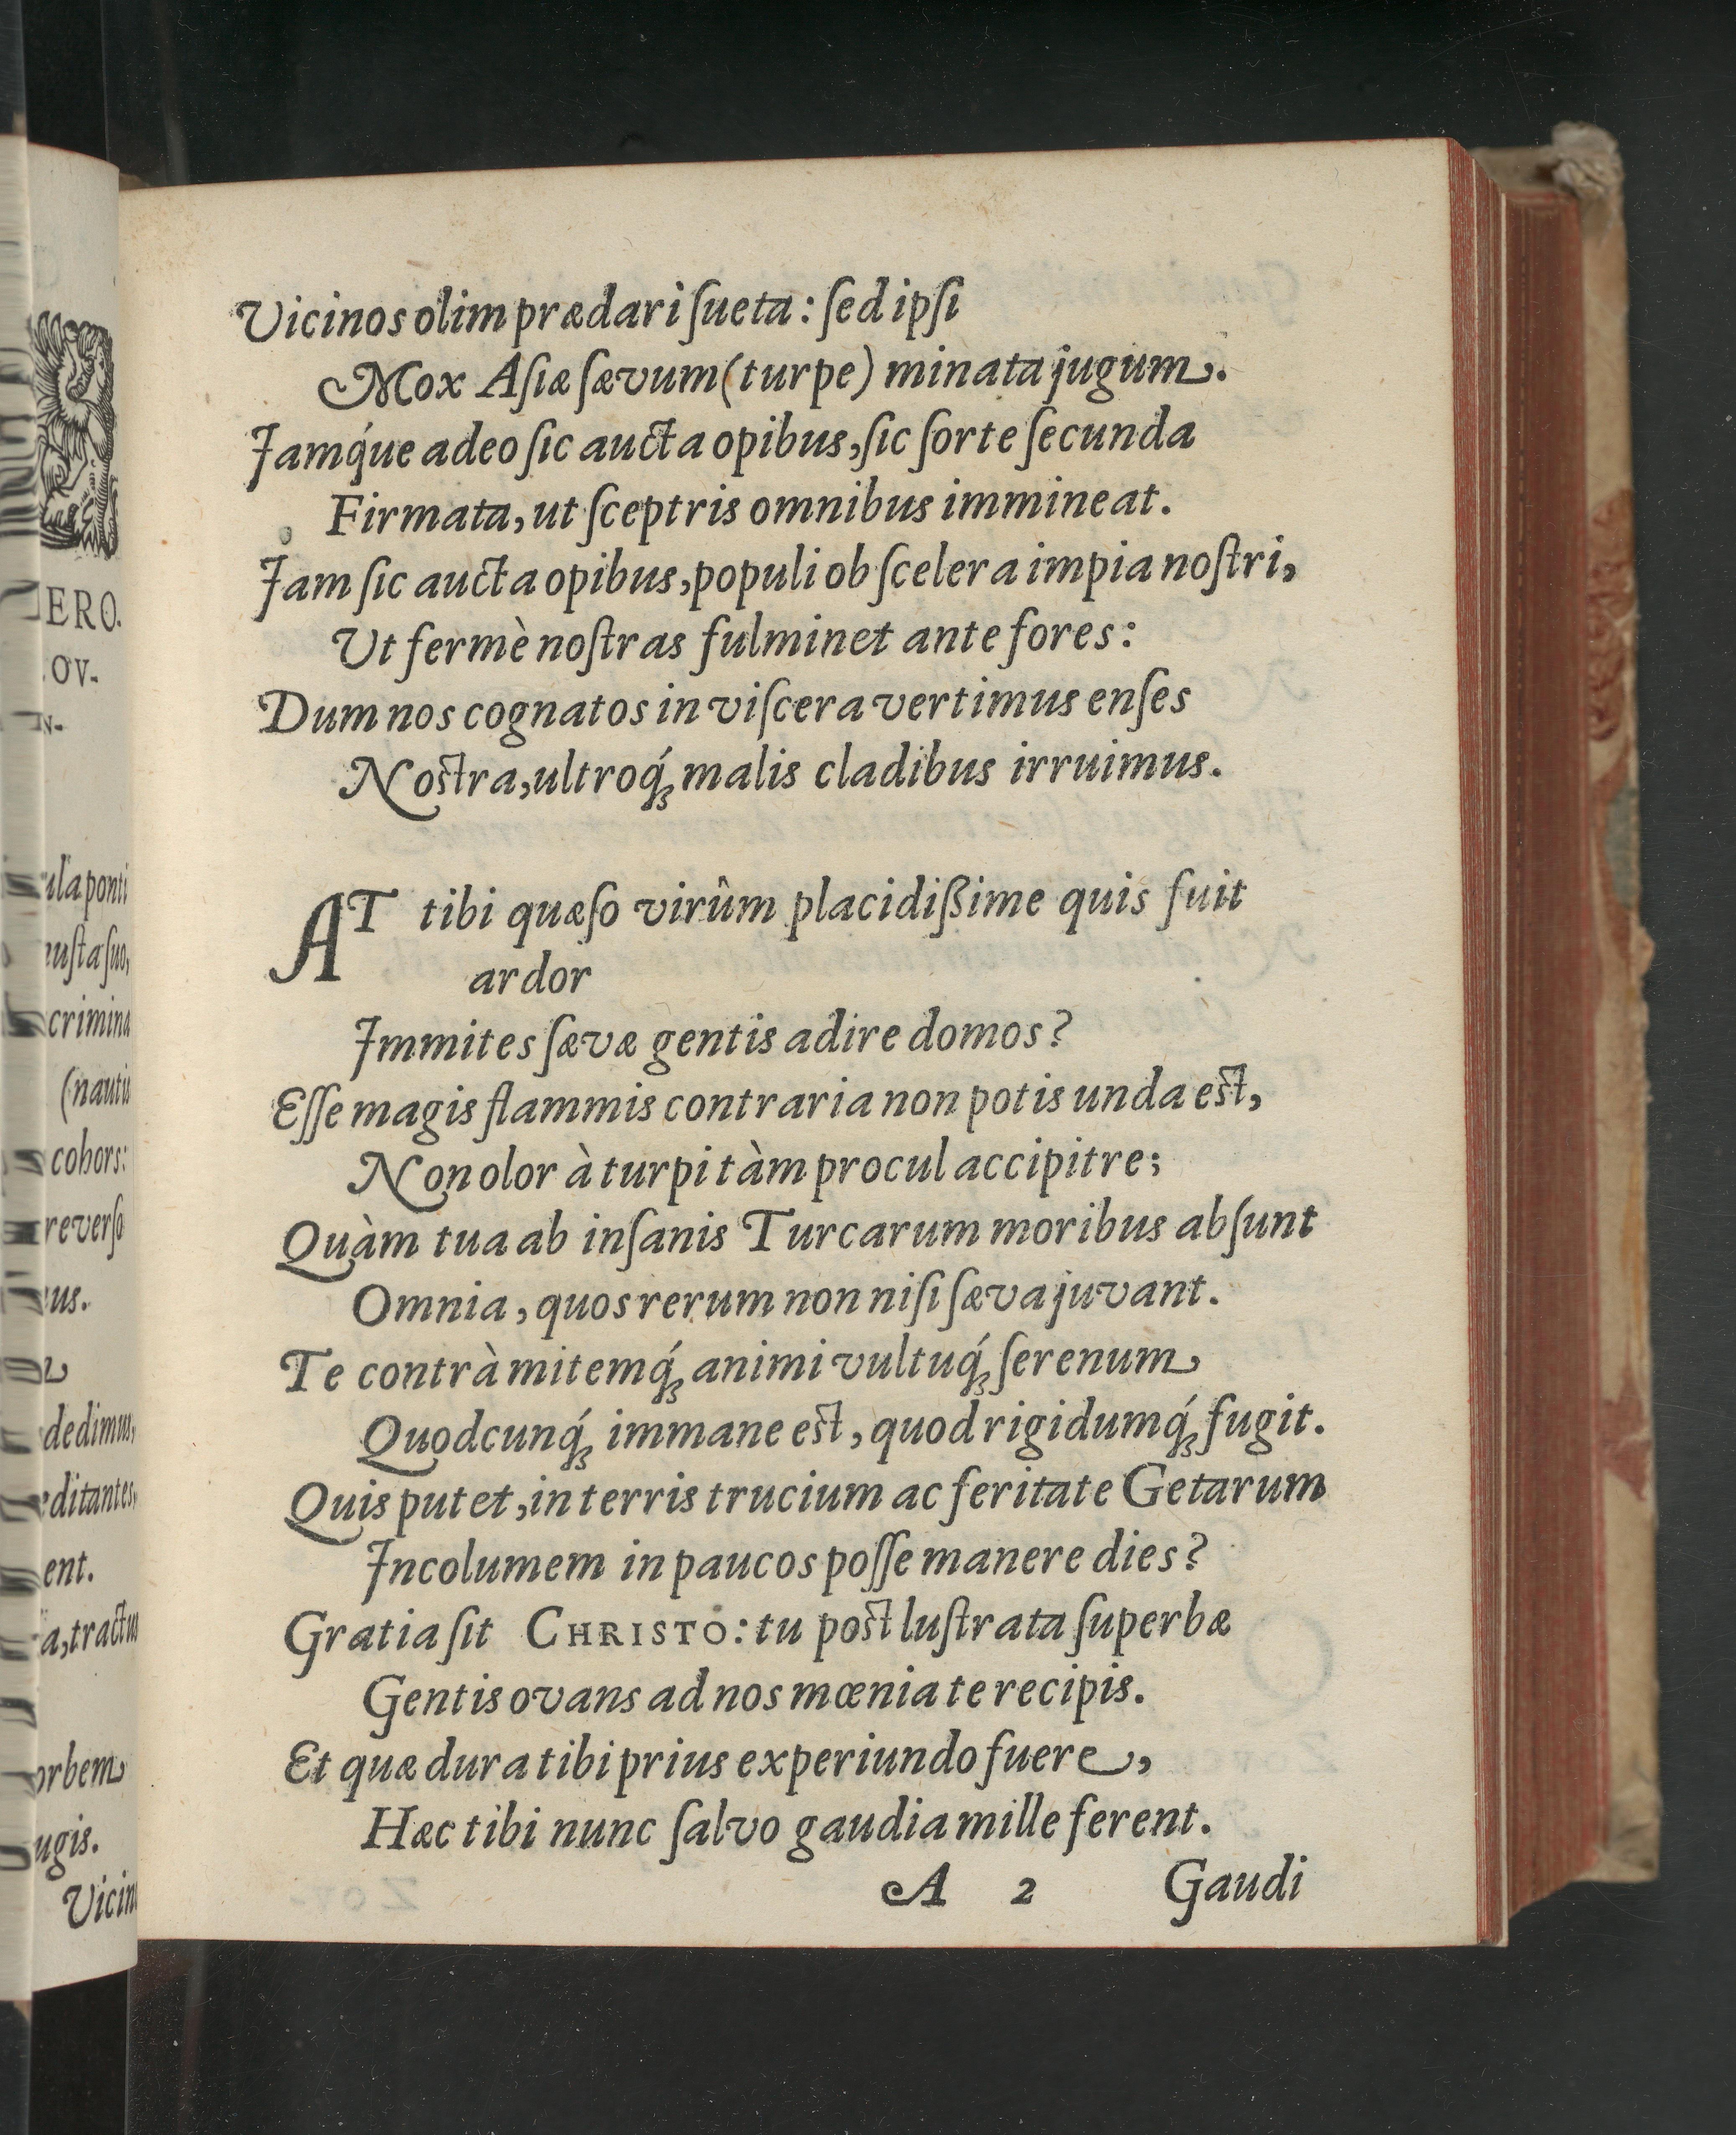 ERO.
OV-
N-
ula ponti
eusta suo,
crimina
(nautis
cohors:
reverso
us.
dedimus,
editantes,
ent.
a, tractus
orbem
ugis.
Vicin
Vicinos olim prædari ſueta: ſed ipſi
Mox Aſiæ ſævum (turpe) minata jugum.
Jamq́ue adeo ſic aucta opibus, ſic ſorte ſecunda
Firmata, ut ſceptris omnibus immineat.
Jam ſic aucta opibus, populi ob ſcelera impia noſtri,
Ut fermè noſtras fulminet ante fores:
Dum nos cognatos in viſcera vertimus enſes
Noſtra, ultroq́ꝫ malis cladibus irruimus.
AT tibi quæſo virûm placidißime quis fuit
ardor
Immites ſævæ gentis adire domos?
Eſſe magis flammis contraria non potis unda eſt,
Non olor à turpi tàm procul accipitre;
Quàm tua ab inſanis Turcarum moribus abſunt
Omnia, quos rerum non niſi ſæva juvant.
Te contrà mitemq́ꝫ animi vultuq́ꝫ ſerenum
Quodcunq́ꝫ immane eſt, quod rigidumq́ꝫ fugit.
Quis putet, in terris trucium ac feritate Getarum
Incolumem in paucos poſſe manere dies?
Gratia ſit CHRISTO: tu poſt luſtrata ſuperbæ
Gentis ovans ad nos mœnia te recipis.
Et quæ dura tibi prius experiundo fuere,
Hæc tibi nunc ſalvo gaudia mille ferent.
A 2 Gaudi